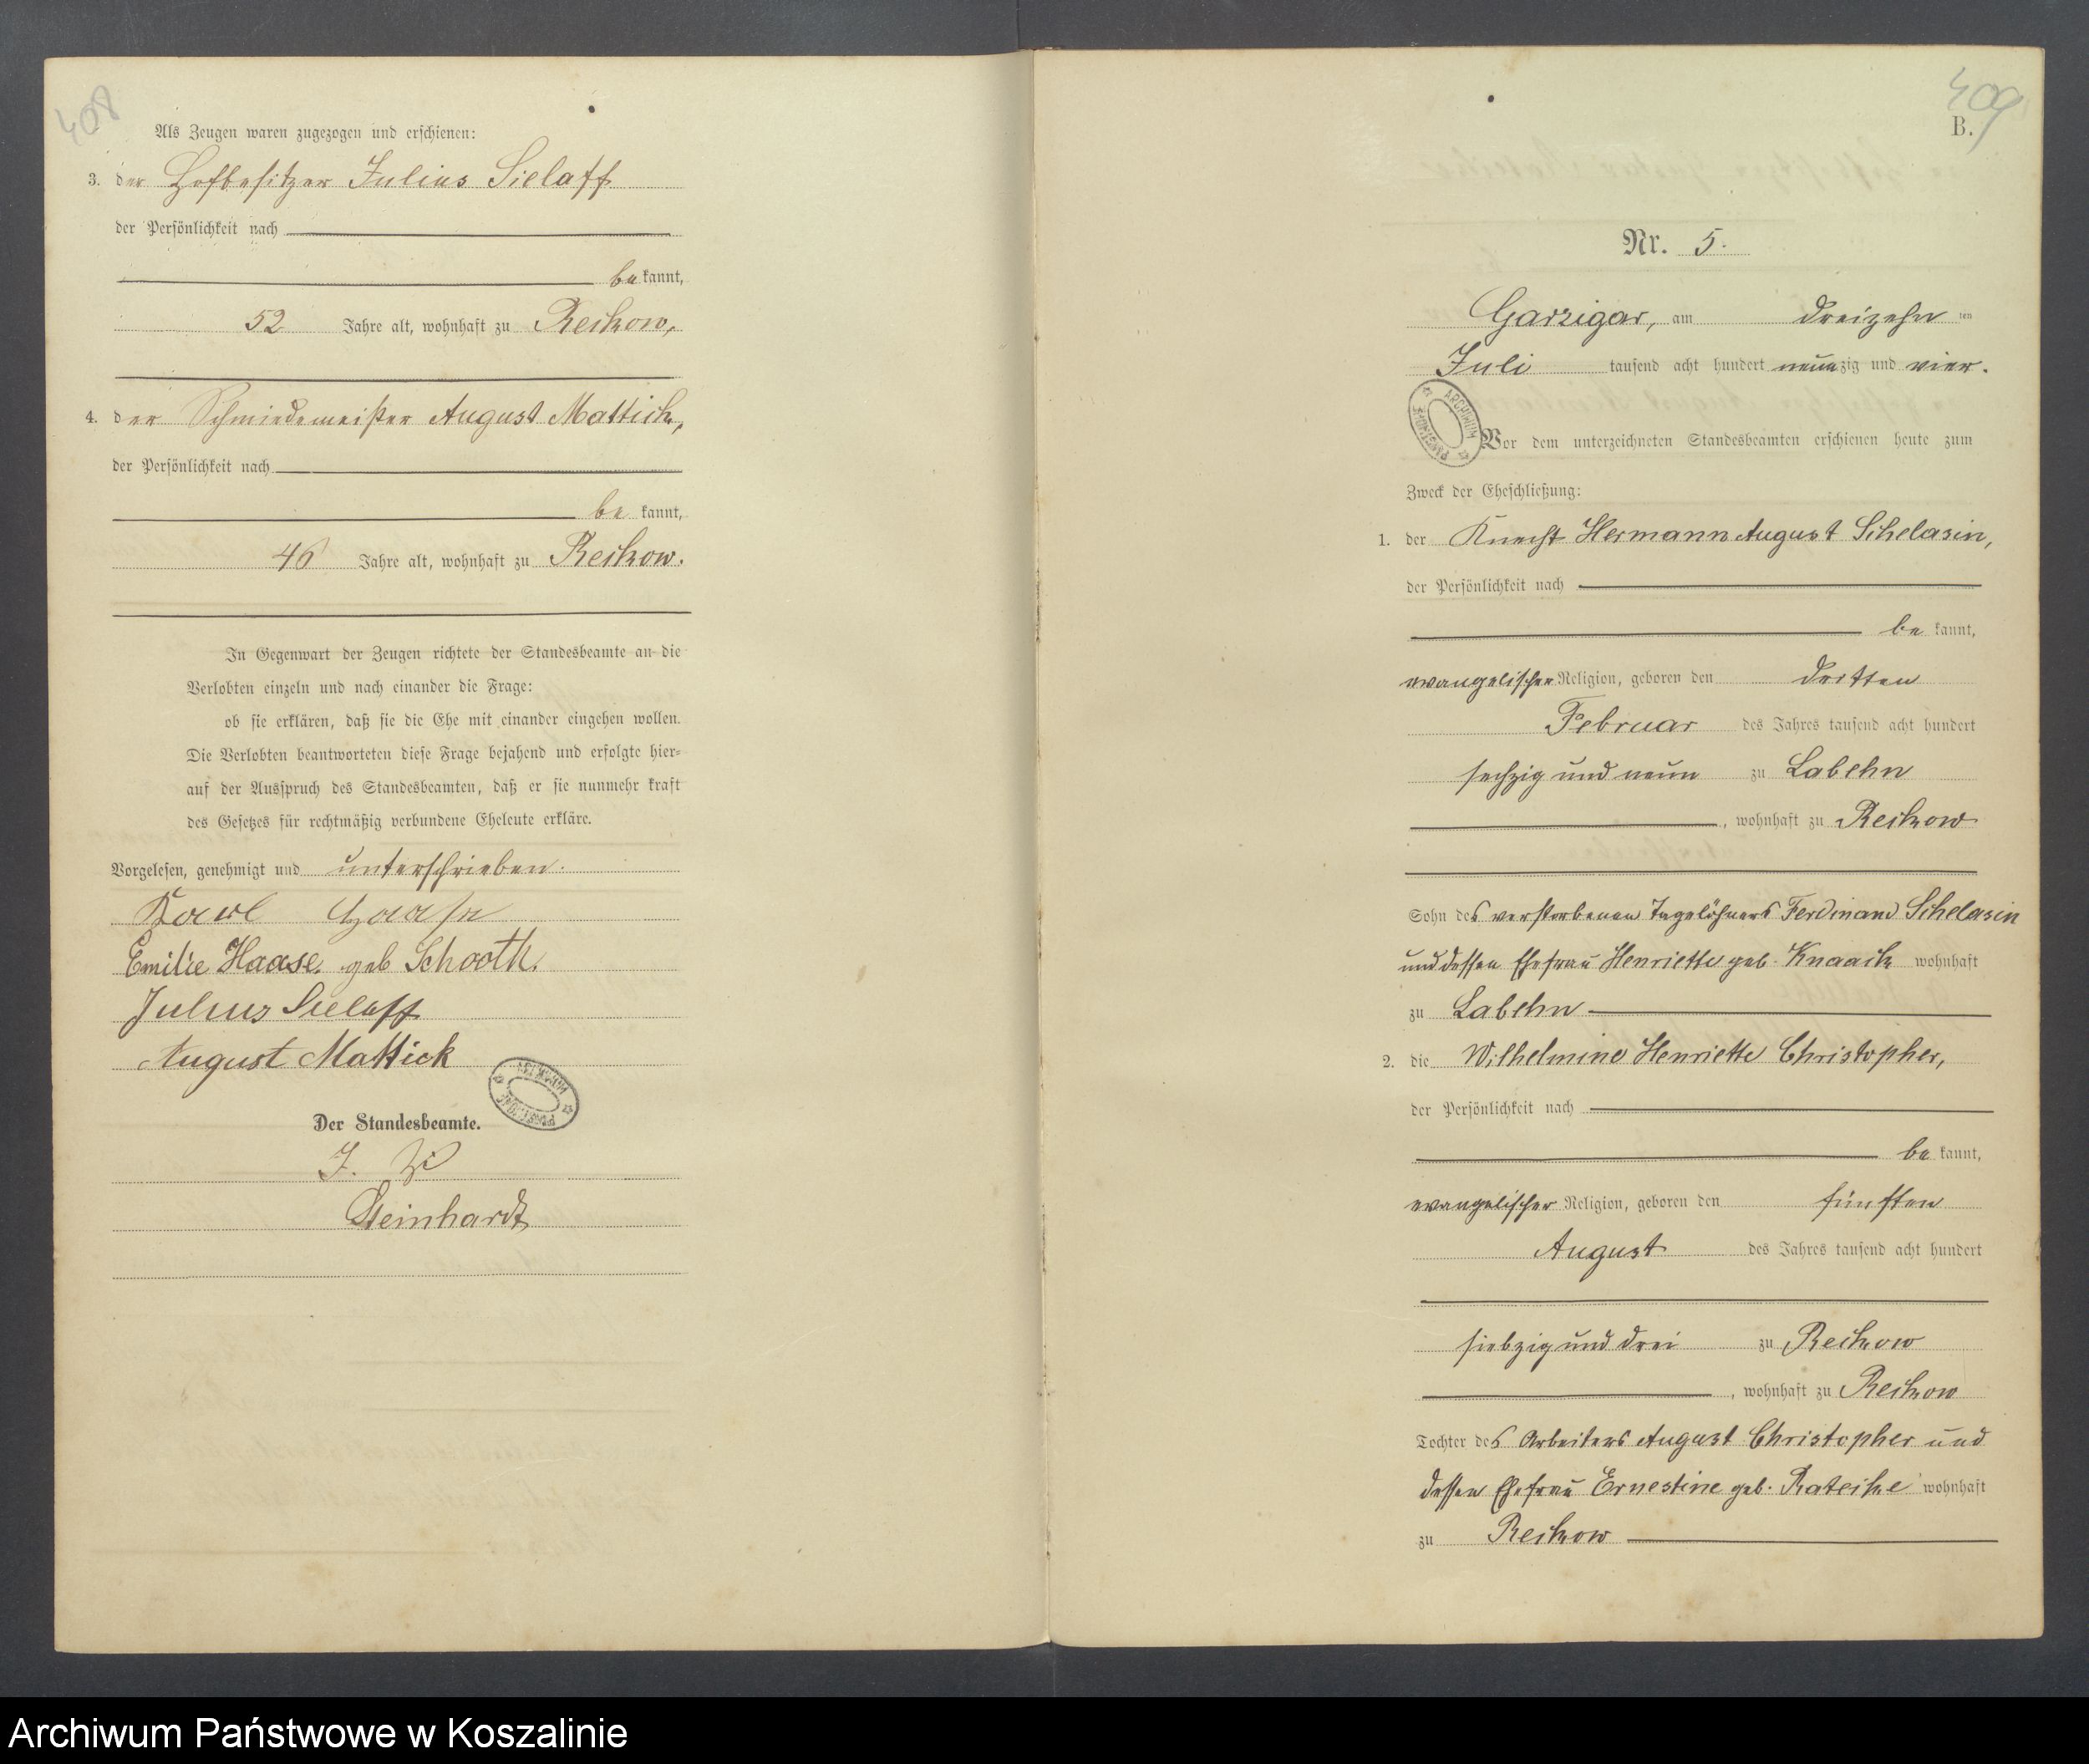 408
Als Zeugen waren zugezogen und erschienen:
3. der Hofbesitzer Julius Sielaff
der Persönlichkeit nach
be kannt,
52 Jahre alt, wohnhaft zu Reckow,
4. der Schmiedemeister August Mattick,
der Persönlichkeit nach
be kannt,
46 Jahre alt, wohnhaft zu Reckow.
In Gegenwart der Zeugen richtete der Standesbeamte an die
Verlobten einzeln und nach einander die Frage:
ob sie erklären, daß sie die Ehe mit einander eingehen wollen.
Die Verlobten beantworteten diese Frage bejahend und erfolgte hier-
auf der Ausspruch des Standesbeamten, daß er sie nunmehr kraft
des Gesetzes für rechtmäßig verbundene Eheleute erkläre.
Vorgelesen, genehmigt und unterschrieben.
Karl Haase
Emilie Haase geb Schooth.
Julius Sielaff
August Mattick
Der Standesbeamte.
J. V.
Steinhardt
409
B.
Nr. 5.
Garzigar, am dreizehn ten
Juli tausend acht hundert neunzig und vier.
ARCHIWUM PAŃSTWOWE
Vor dem unterzeichneten Standesbeamten erschienen heute zum
Zweck der Eheschließung:
1. der Knecht Hermann August Schelasin,
der Persönlichkeit nach
be kannt,
evangelischer Religion, geboren den dritten
Februar des Jahres tausend acht hundert
sechzig und neun zu Labehn
, wohnhaft zu Reckow
Sohn des verstorbenen Tagelöhners Ferdinand Schelasin
und dessen Ehefrau Henriette geb. Knaack wohnhaft
zu Labehn
2. die Wilhelmine Henriette Christopher,
der Persönlichkeit nach
be kannt,
evangelischer Religion, geboren den fünften
August des Jahres tausend acht hundert
siebzig und drei zu Reckow
, wohnhaft zu Reckow
Tochter des Arbeiters August Christopher und
dessen Ehefrau Ernestine geb. Rateike wohnhaft
zu Reckow
Archiwum Państwowe w Koszalinie